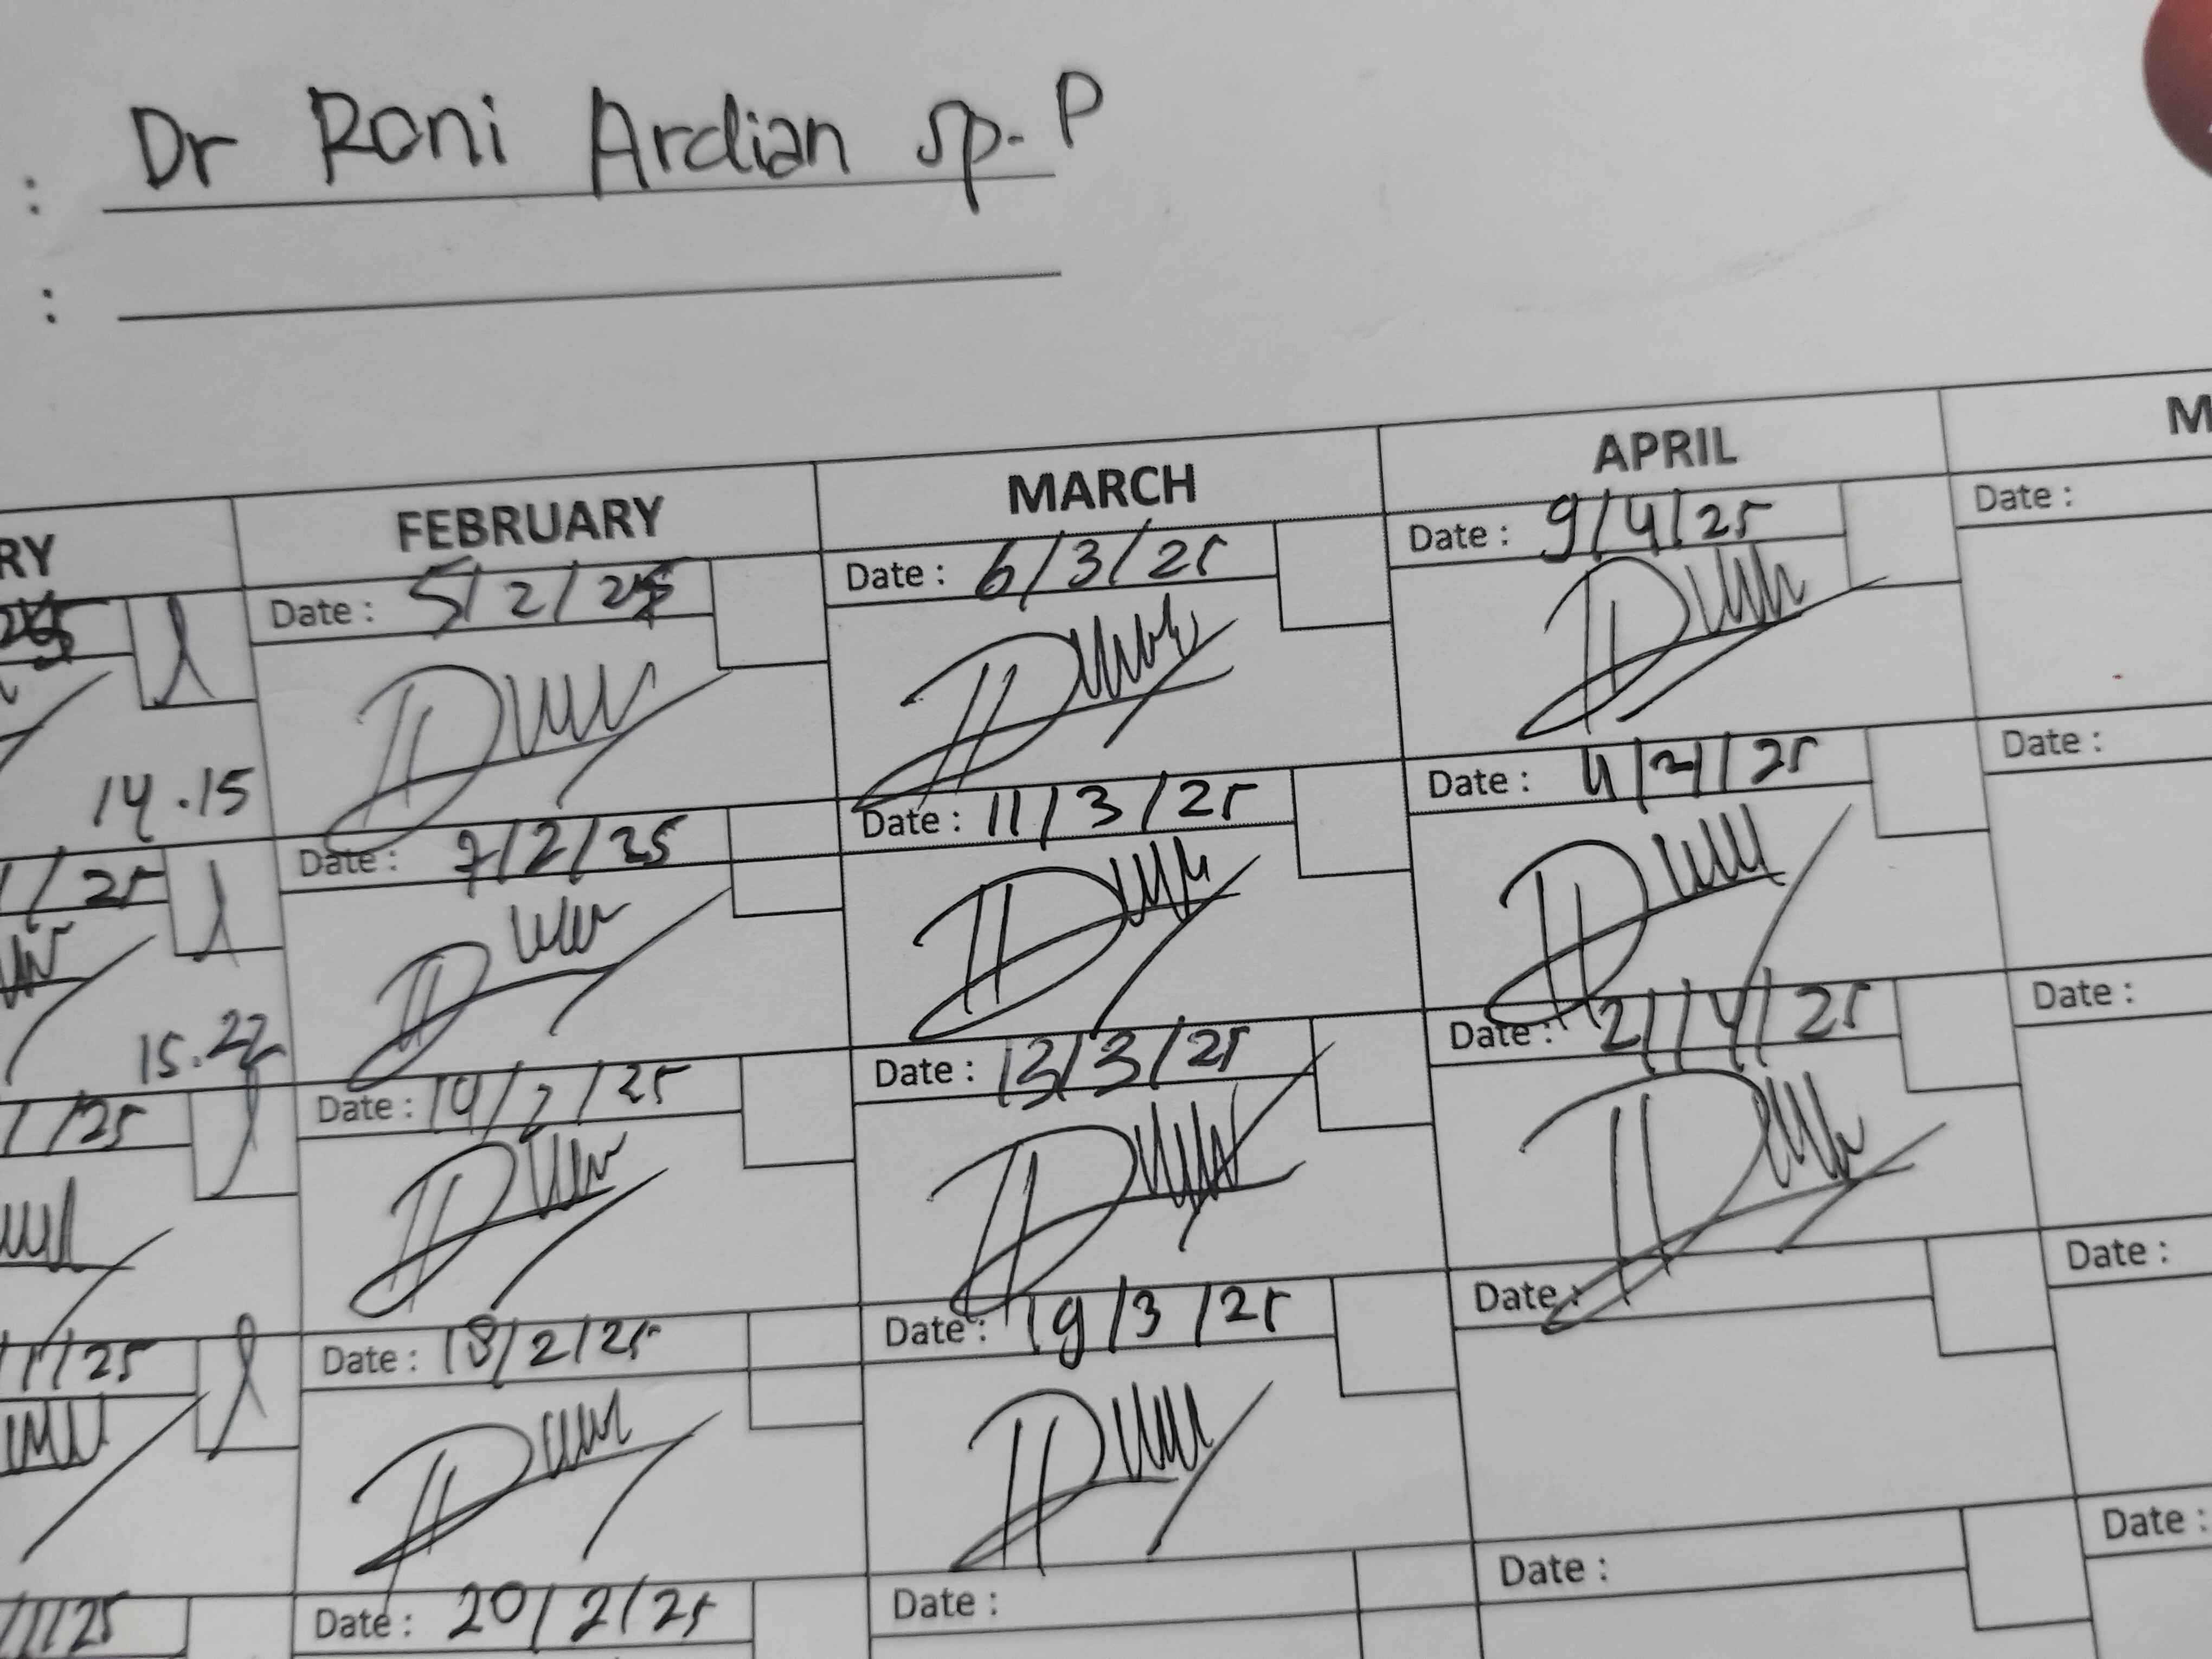 : Dr Roni Ardian sp. P
:
RY FEBRUARY MARCH APRIL M
Date : 5/2/25 Date : 6/3/25 Date : 9/4/25 Date :
14.15
/25 Date : 7/2/25 Date : 11/3/25 Date : /25 Date :
15.22
/25 Date : /2/25 Date : 13/3/25 Date : 21/4/25 Date :
/1/25 Date : 18/2/25 Date : 19/3/25 Date : Date :
/1/25 Date : 20/2/25 Date : Date : Date :